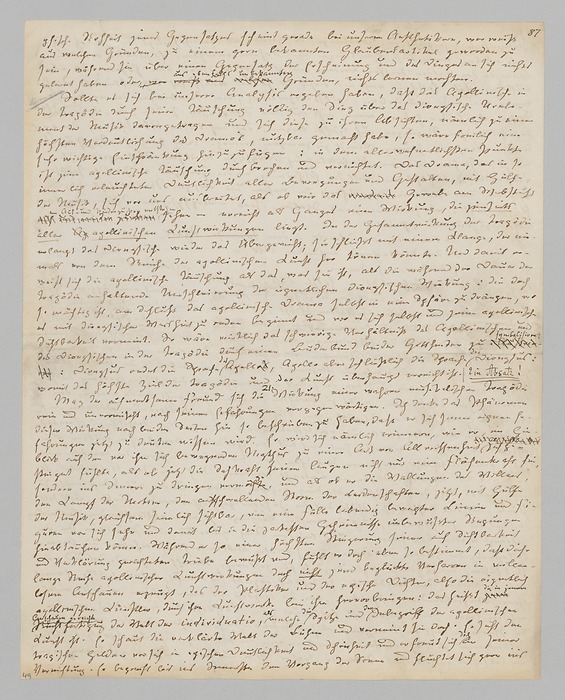 physische Roheit jenes Gegensatzes scheint gerade bei unseren Aesthetikern, wer weiß 87
aus welchen Gründen, zu einem gern bekannten Glaubensartikel geworden zu
sein, während sie über einen Gegensatz der Erscheinung und des Dinges an sich nichts
gelernt haben oder, aus ebenfalls unbekannten Gründen, nichts lernen mochten.
Sollte es sich bei unserer Analysis ergeben haben, daß das Apollinische in
der Tragödie durch seine Täuschung völlig den Sieg über das dionysische Urele-
ment der Musik davongetragen und sich diese zu ihren Absichten, nämlich zu einer
höchsten Verdeutlichung des Dramas, nutzbar gemacht habe, so wäre freilich eine
sehr wichtige Einschränkung hinzuzufügen: in dem allerwesentlichsten Punkte
ist jene apollinische Täuschung durchbrochen und vernichtet. Das Drama, das in so
innerlich erleuchteter Deutlichkeit aller Bewegungen und Gestalten, mit Hülfe
der Musik, sich vor uns ausbreitet, als ob wir das Gewebe am Webstuhl
im Auf und Niederzucken entstehen sehen – erreicht als Ganzes eine Wirkung, die jenseits
aller apollinischen Kunstwirkungen liegt. In der Gesammtwirkung der Tragödie
erlangt das Dionysische wieder das Übergewicht; sie schließt mit einem Klange, der nie-
mals von dem Reiche der apollinischen Kunst her tönen könnte. Und damit er-
weist sich die apollinische Täuschung als das, was sie ist, als die während der Dauer der
Tragödie anhaltende Umschleierung der eigentlichen dionysischen Wirkung: die doch
so mächtig ist, am Schluß das apollinische Drama selbst in eine Sphäre zu drängen, wo
es mit dionysischer Weisheit zu reden beginnt und wo es sich selbst und seine apollinische
Sichtbarkeit verneint. So wäre wirklich das schwierige Verhältniß des Apollinischen und
des Dionysischen in der Tragödie durch einen Bruderbund beider Gottheiten zu symbolisiren
: Dionysus redet die Sprache Apollos, Apollo aber schließlich die Sprache Dionysus:
womit das höchste Ziel der Tragödie und der Kunst überhaupt erreicht ist. Ein Absatz!
Mag der aufmerksame Freund sich die Wirkung einer wahren musikalischen Tragödie
rein und unvermischt, nach seinen Erfahrungen vergegenwärtigen. Ich denke das Phänomen
dieser Wirkung nach beiden Seiten hin so beschrieben zu haben, daß er sich seine eignen Er-
fahrungen jetzt zu deuten wissen wird. Er wird sich nämlich erinnern, wie er, im Hin-
blick auf den vor ihm sich bewegenden Mythus, zu einer Art von Allwissenheit sich ge-
steigert fühlte, als ob jetzt die Sehkraft seiner Augen nicht nur eine Flächenkraft sei,
sondern ins Innere zu dringen vermöge, und als ob er die Wallungen des Willens,
den Kampf der Motive, den anschwellenden Strom der Leidenschaften, jetzt, mit Hülfe
der Musik, gleichsam sinnlich sichtbar, wie eine Fülle lebendig bewegter Linien und Fi-
guren vor sich sehe und damit bis in die zartesten Geheimnisse unbewußter Regungen
hinabtauchen könne. Während er so einer höchsten Steigerung seiner auf Sichtbarkeit
und Verklärung gerichteten Triebe bewußt wird, fühlt er doch eben so bestimmt, daß diese
lange Reihe apollinischer Kunstwirkungen doch nicht jenes beglückte Verharren in willen-
losem Anschauen erzeugt, das der Plastiker und der epische Dichter, also die eigentlich
apollinischen Künstler, durch ihre Kunstwerke bei ihm hervorbringen: das heißt die in jenem Anschauen
erreichte Rechtfertigung der Welt der individuatio, als welche die Spitze und der Inbegriff der apollinischen
Kunst ist. Er schaut die verklärte Welt der Bühne und verneint sie doch. Er sieht den
tragischen Helden vor sich in epischer Deutlichkeit und Schönheit und erfreut sich doch an seiner
Vernichtung. Er begreift bis ins Innerste den Vorgang der Scene und flüchtet sich gern ins